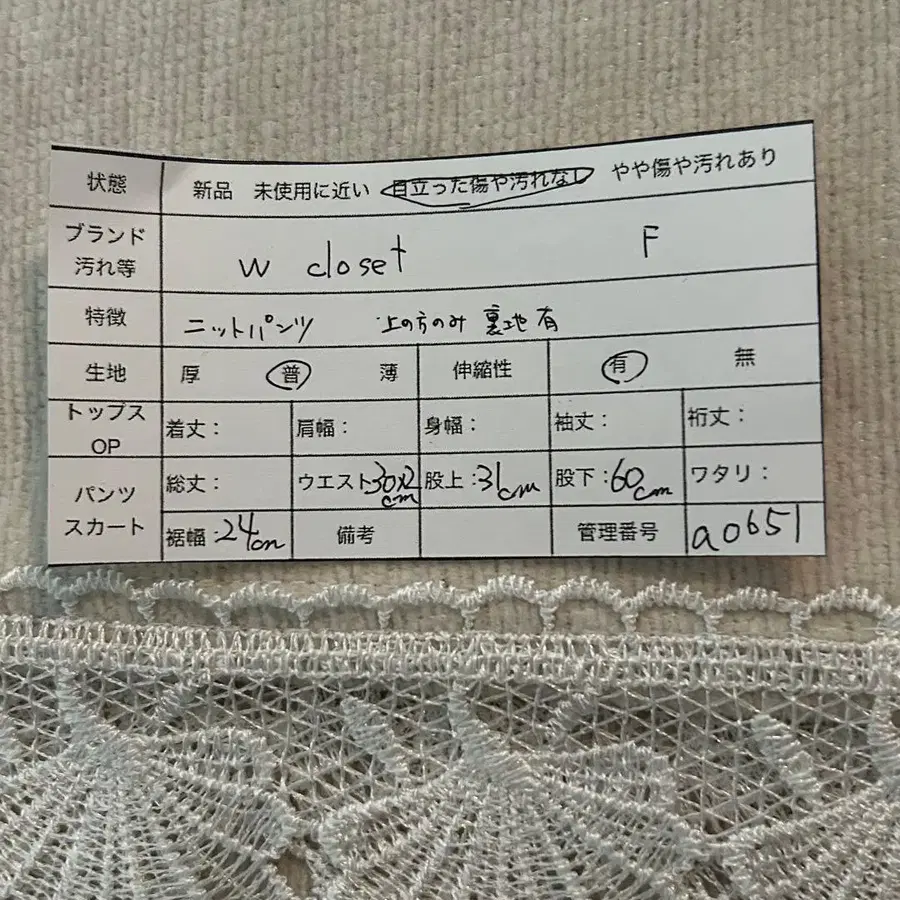 状態 新品 未使用に近い 目立った傷や汚れなし やや傷や汚れあり
ブランド
汚れ等 w closet F
特徴 ニットパンツ 上の方のみ 裏地有
生地 厚 普 薄 伸縮性 有 無
トップス
OP 着丈: 肩幅: 身幅: 袖丈: 裄丈:
パンツ
スカート 総丈: ウエスト30x2cm 股上:31cm 股下:60cm ワタリ:
裾幅:24cm 備考 管理番号 a0651